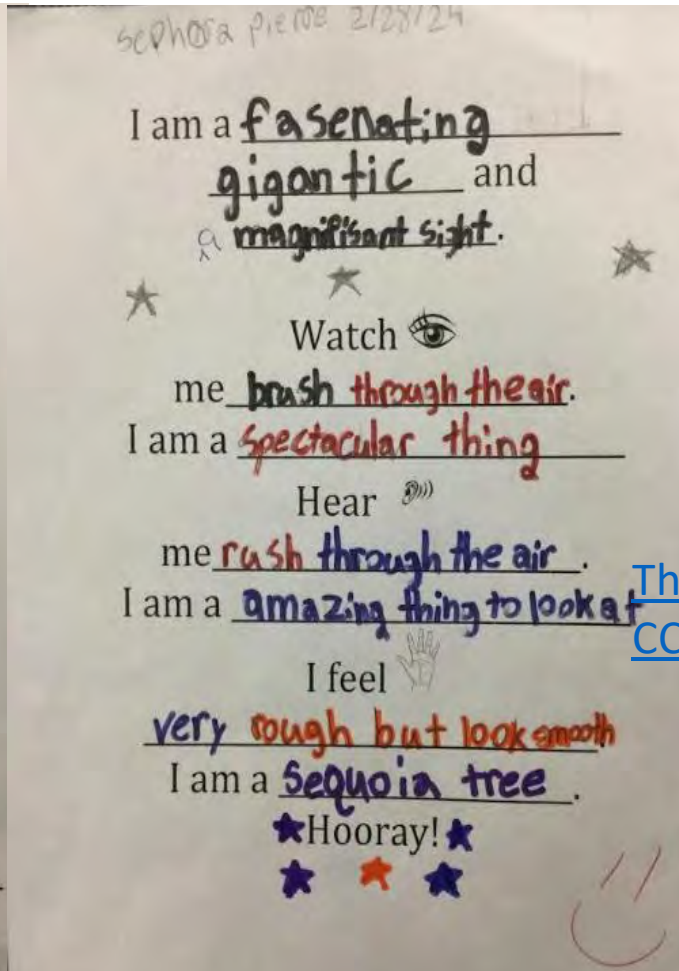 sephora pierre 2/28/24
I am a fasenating
gigantic and
a magnifisant sight.
Watch
me brush through the air.
I am a spectacular thing
Hear
me rush through the air.
I am a amazing thing to look at
Th
CO
I feel
very rough but look smooth
I am a sequoia tree.
Hooray!